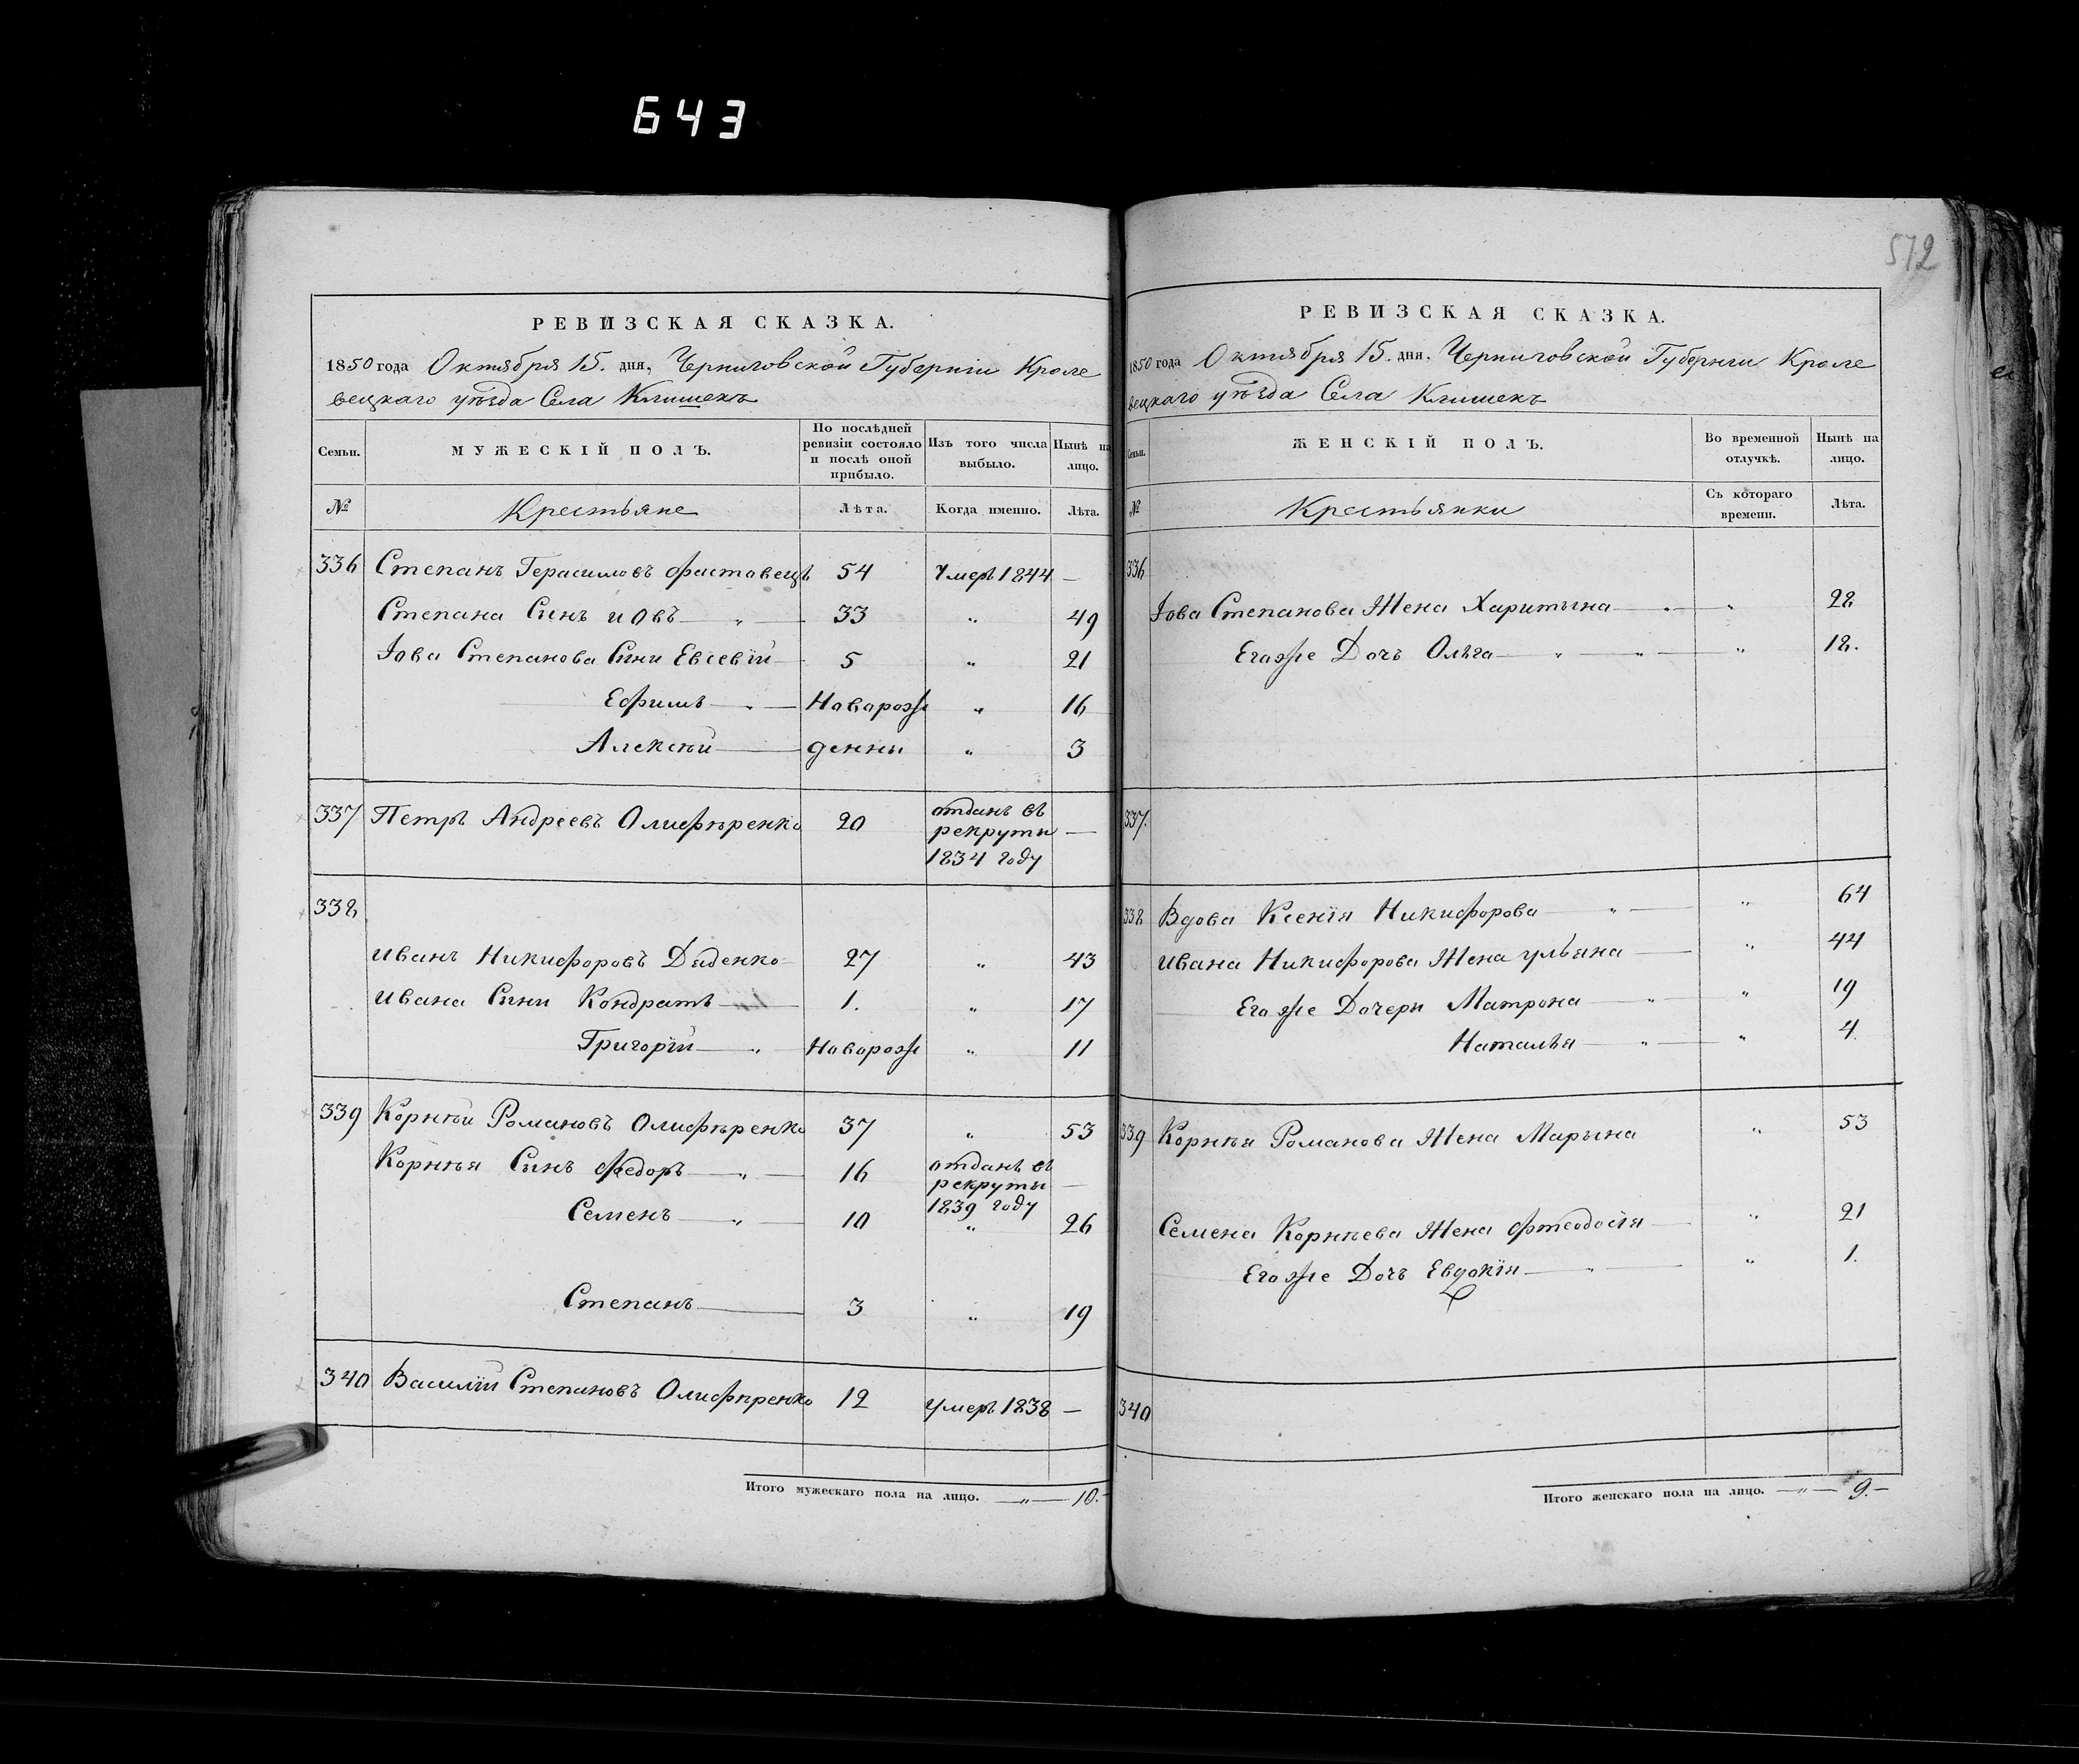 643
572
РЕВИЗСКАЯ СКАЗКА.
1850 года Октября 15. дня, Черниговской Губерніи Кроле
вецкаго уѣзда Села Клишекъ
Семьи.
МУЖЕСКІЙ ПОЛЪ.
По послѣдней ревизіи состояло и послѣ оной прибыло.
Изъ того числа выбыло.
Нынѣ на лицо.
№ Крестьяне Лѣта. Когда именно. Лѣта.
336 Степанъ Герасимовъ Фастовецъ 54 Умеръ 1844 —
Степана Сынъ иовъ — „ — 33 „ 49
Іова Степанова Сыни Евсевій — 5 „ 21
Ефимъ — „ — Наварож „ 16
Алексѣй — денны „ 3
337 Петръ Андреевъ Олифѣренко 20 отданъ въ
рекруты —
1834 году
338
иванъ Никифоровъ Диденко 27 „ 43
ивана Сыни Кондратъ — 1. „ 17
Григорій — „ Наворож „ 11
339 Корнѣй Романовъ Олифѣренко 37 „ 53
Корнѣя Сынъ Федоръ — „ — 16 отданъ въ
рекруты —
1839 году
Семенъ — „ — 10 „ 26
Степанъ — 3 „ 19
340 Василій Степановъ Олифѣренко 12 умеръ 1838 —
Итого мужескаго пола на лицо. — „ — 10. —
РЕВИЗСКАЯ СКАЗКА.
1850 года Октября 15. дня, Черниговской Губерніи Кроле
вецкаго уѣзда Села Клишекъ
Семьи.
ЖЕНСКІЙ ПОЛЪ.
Во временной отлучкѣ.
Нынѣ на лицо.
№ Крестьянки Съ котораго времени. Лѣта.
336
Іова Степанова Жена Харитына — „ — „ 28
Егоже Дочъ Ольга — „ — „ — „ 18.
337.
338 Вдова Ксенія Никифорова — „ — „ 64
ивана Никифорова Жена ульяна — „ 44
Егоже Дочери Матрона — „ — „ 19
Наталья — „ — „ 4.
339 Корнѣя Романова Жена Марына „ 53
Семена Корнѣева Жена Фтеодосія — „ 21
Егоже Дочъ Евдокія — „ — „ 1.
340
Итого женскаго пола на лицо. — „ — 9. —